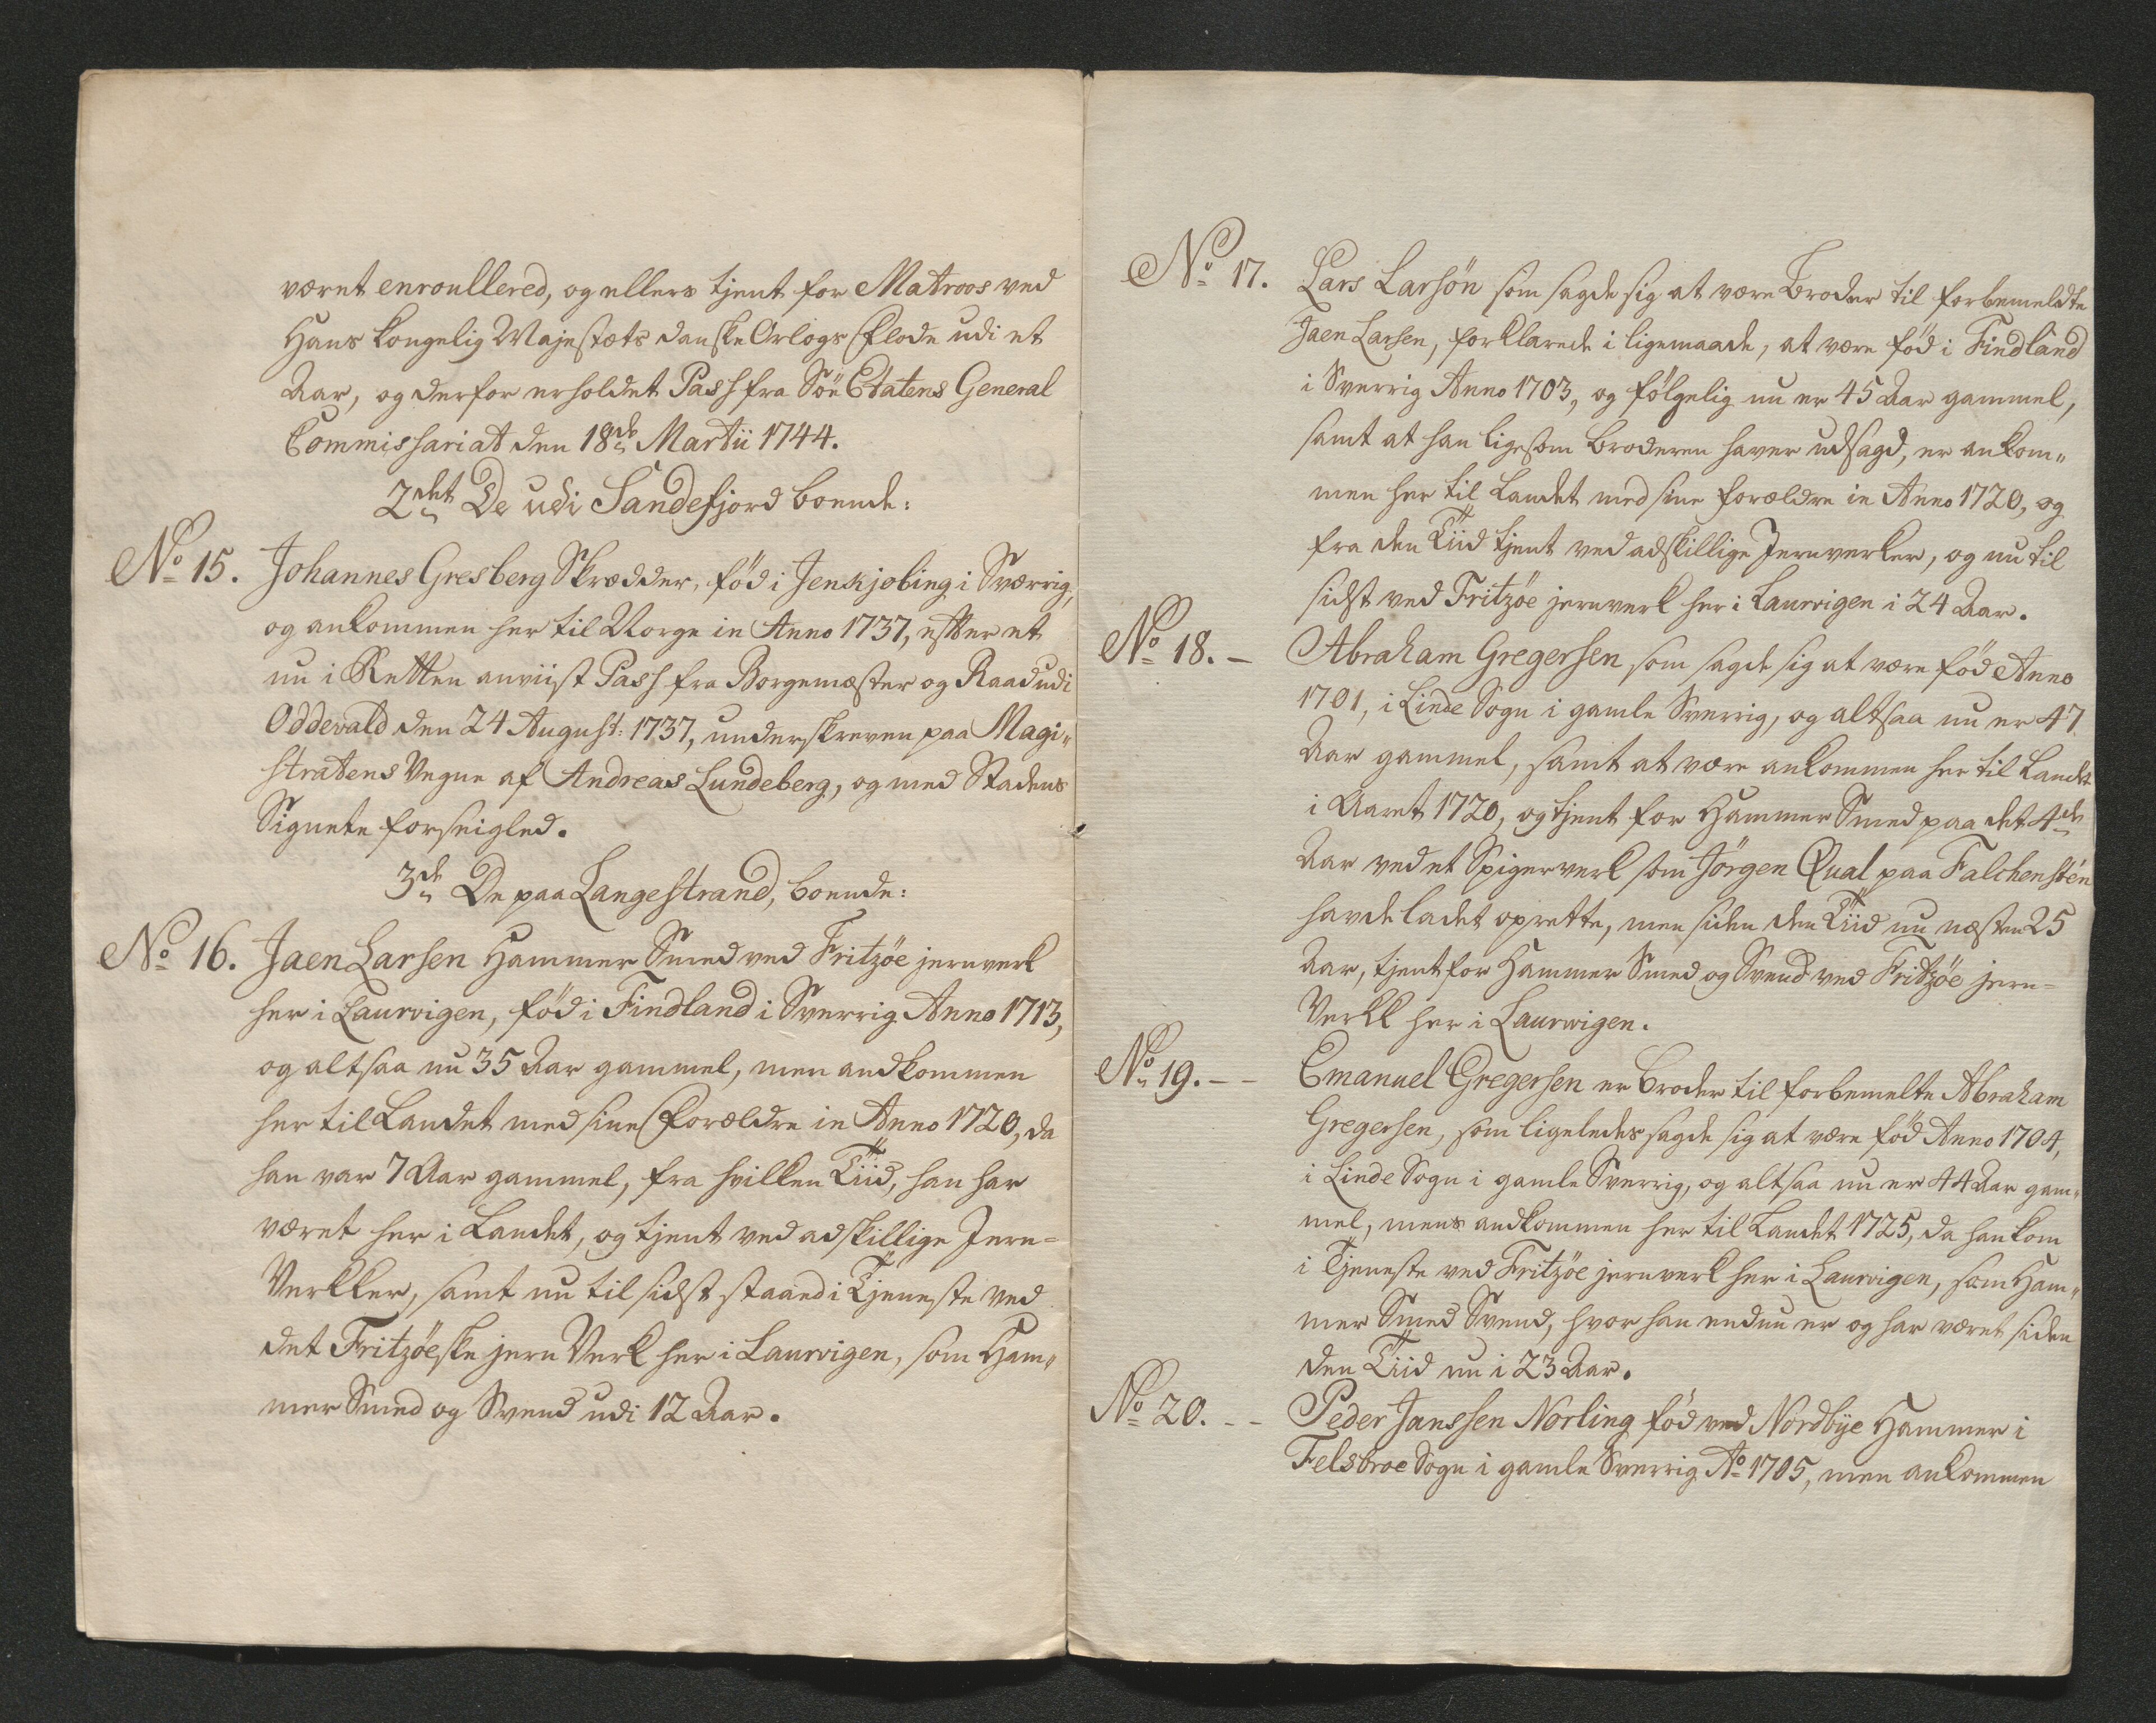 været enroullered, og ellers tjent for Matroos ved
Hans Kongelig Majestæts danske Orlogs Flode udi et
Aar, og derfor erholdet Pass fra Söe Etatens General
Commissariat den 18de Martii 1744.
2det De udi Sandefjord boende:
No 15. Johannes Gresberg Skrædder, föd i Jenkjobing i Sværrig,
og ankommen her til Norge in Anno 1737, efter et
nu i Retten anviist Pass fra Borgemæster og Raad udi
Oddevald den 24 August: 1737, underskreven paa Magi„
stratens Vegne af Andreas Lundeberg, og med Stadens
Signete forseigled.
3de De paa Langestrand, boende:
No 16. Jaen Larsen Hammer Smed ved Fritzöe jernverk
her i Laurvigen, föd i Findland i Sverrig Anno 1713,
og altsaa nu 35 Aar gammel, men andkommen
her til Landet med sine Forældre in Anno 1720, da
han var 7 Aar gammel, fra hvilken Tiid, han har
været her i Landet, og tjent ved adskillige Jern=
Verkker, samt nu til sidst staaed i Tjeneste ved
det Fritzöeske jern Verk her i Laurvigen, som Ham„
mer Smed og Svend udi 12 Aar.
No 17. Lars Larsön som sagde sig at være Broder til forbemeldte
Jaen Larsen, forklarede i ligemaade, at være föd i Findland
i Sverrig Anno 1703, og fölgelig nu er 45 Aar gammel,
samt at han ligesom Broderen haver udsagd, er ankom„
men her til Landet med sine forældre in Anno 1720, og
fra den Tiid tjent ved adskillige Jernverker, og nu til
sidst ved Fritzöe jernverk her i Laurvigen i 24 Aar.
No 18. – Abraham Gregersen som sagde sig at være föd Anno
1701, i Linde Sogn i gamle Sverrig, og altsaa nu er 47
Aar gammel, samt at være ankommen her til Landet
i Aaret 1720, og tjent for Hammer Smed paa det 4de
Aar ved et Spigerverk som Jörgen Qual paa Falchensten
havde ladet oprette, men siden den Tiid nu næsten 25
Aar, tjent for Hammer Smed og Svend ved Fritzöe jern=
Verkk her i Laurwigen.
No 19. – – Emanuel Gregersen er Broder til forbemelte Abraham
Gregersen, som ligeledes sagde sig at være föd Anno 1704,
i Linde Sogn i gamle Sverrig, og altsaa nu er 44 Aar gam„
mel, mens andkommen her til Landet 1725, da han kom
i Tjeneste ved Fritzöe jernverk her i Laurvigen, som Ham„
mer Smed Svend, hvor han endnu er og har været siden
den Tiid nu i 23 Aar.
No 20. – – Peder Janssen Norling föd ved Nordbye Hammer i
Felsbroe Sogn i gamle Sverrig Ao 1705, men ankommen